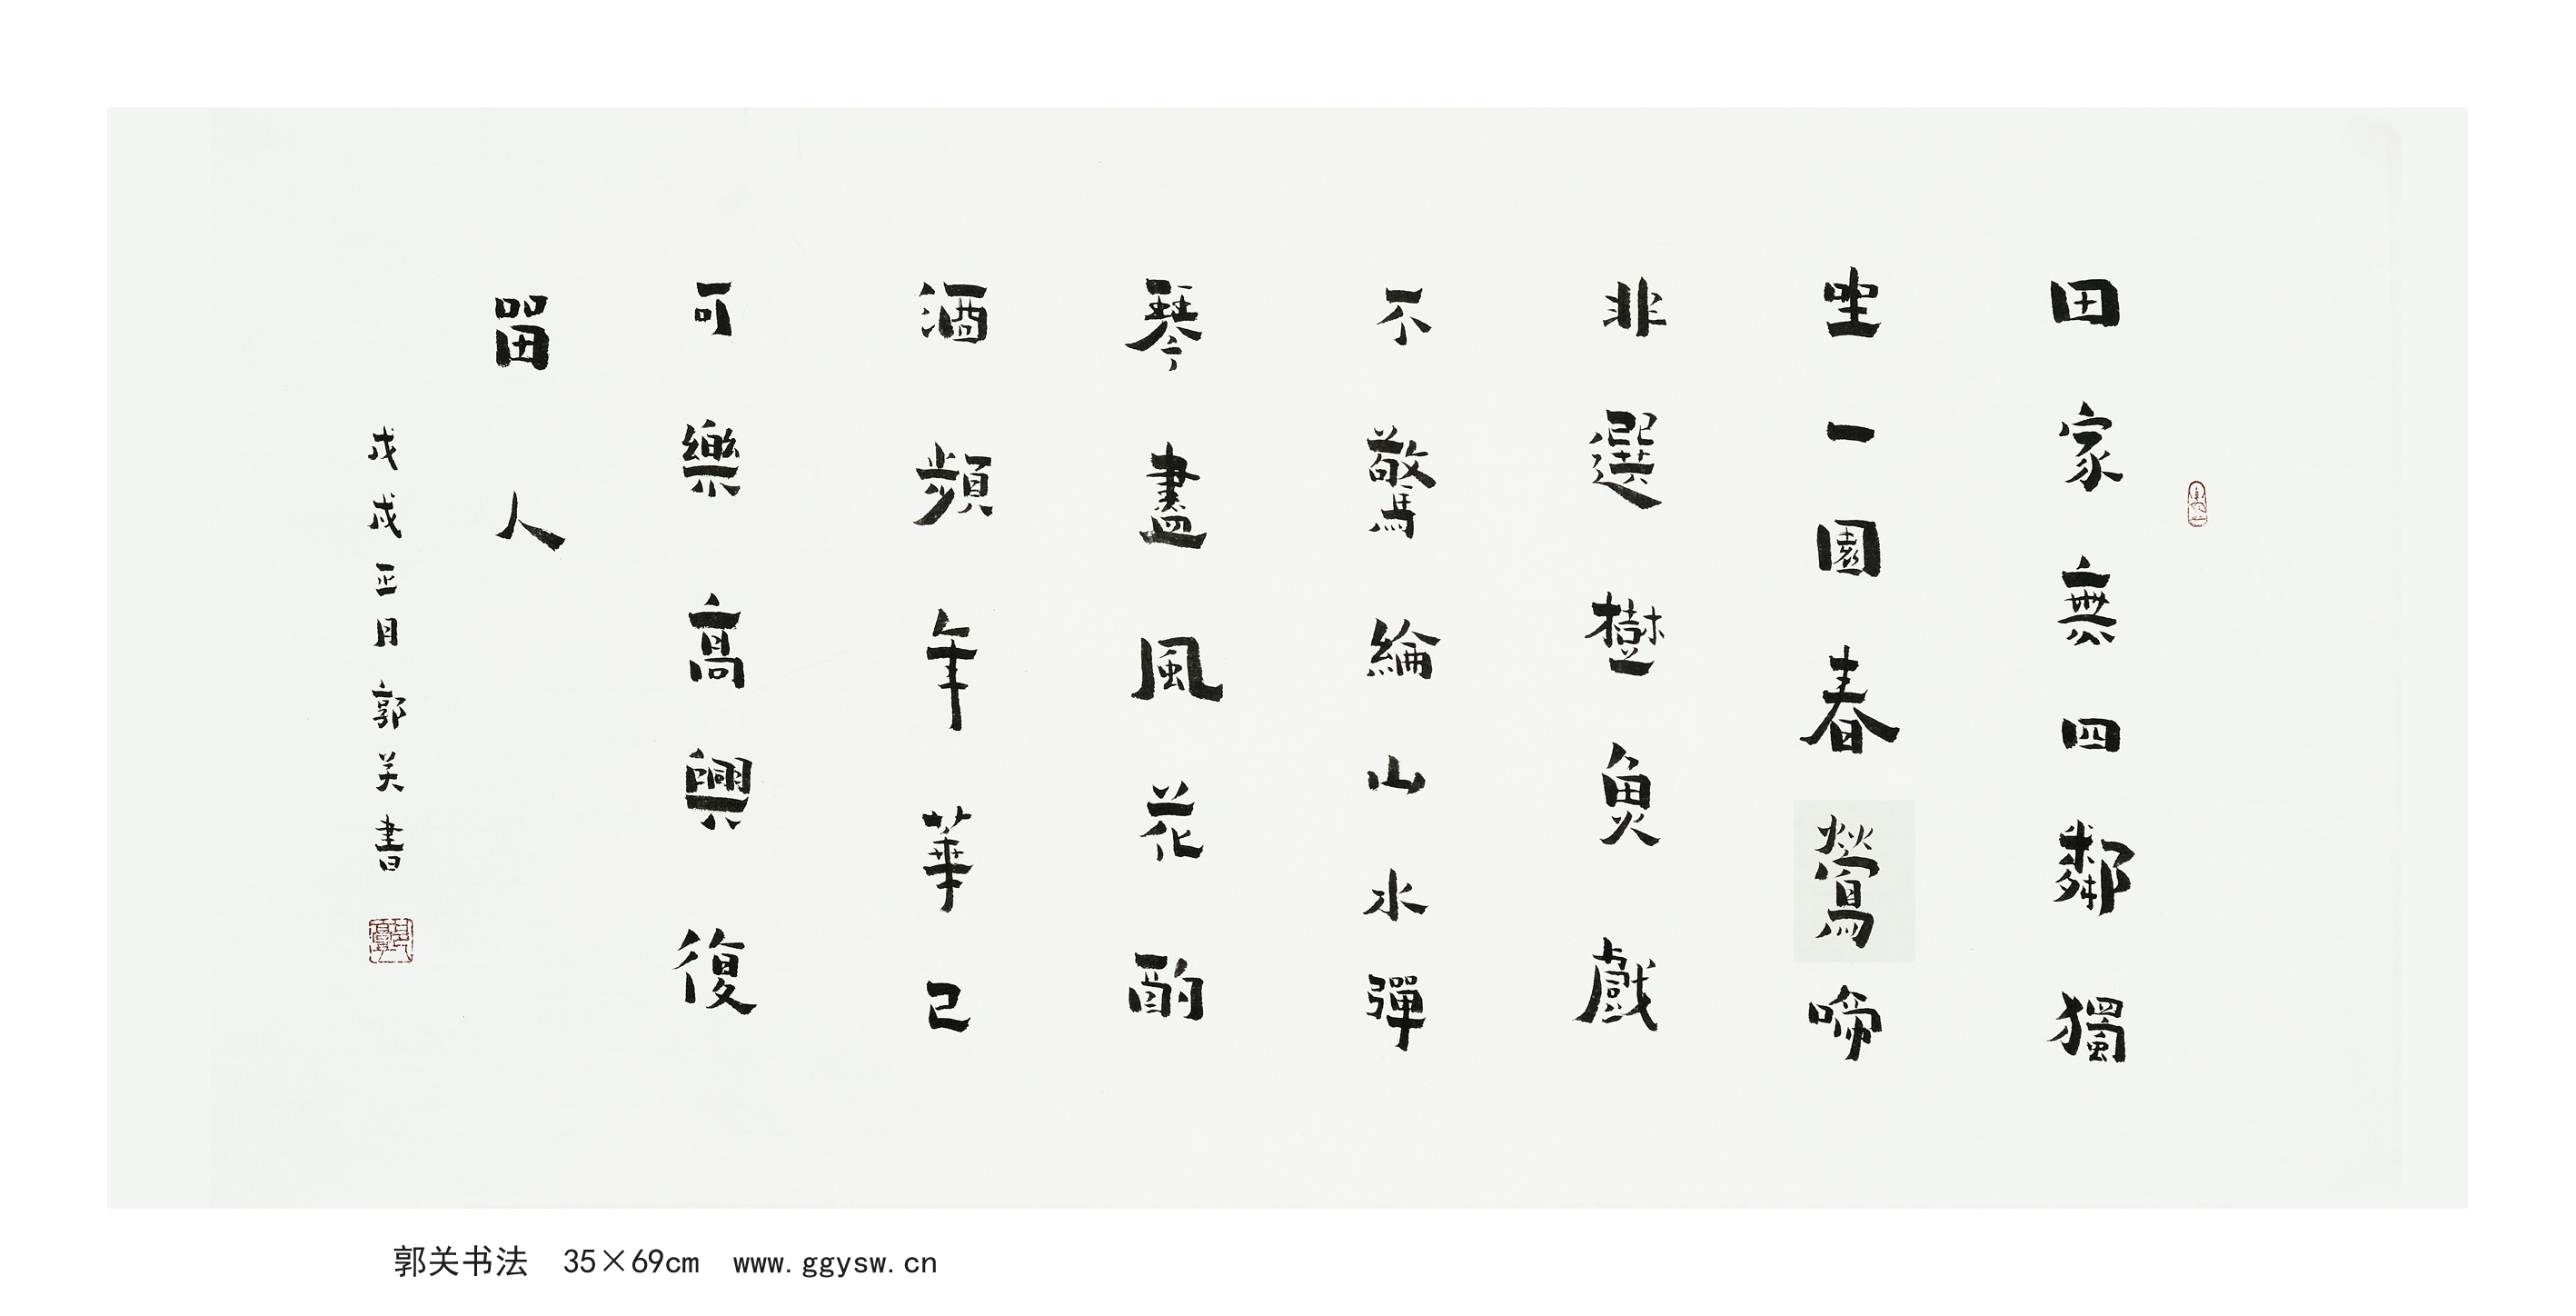 田家無四鄰獨
坐一園春鶯啼
非選樹魚戲
不驚綸山水彈
琴盡風花酌
酒頻年華已
可樂高興復
留人
戊戌正月郭关書
郭关书法 35×69cm www.ggysw.cn